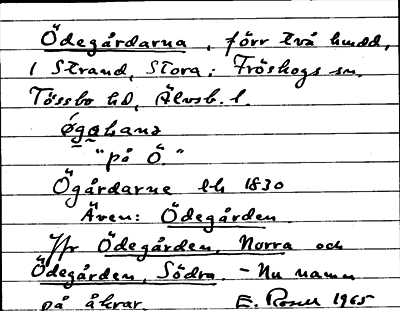 Ödegårdarna, förr två hmdd,
i Strand, Stora; Fröskogs sn,
Tössbo hd, Älvsb. l.
øgaɷana
"på Ö."
Ögårdarne lh 1830
Även: Ödegården.
Jfr Ödegården, Norra och
Ödegården, Södra. - Nu namn
på åkrar. E. Rosell 1965